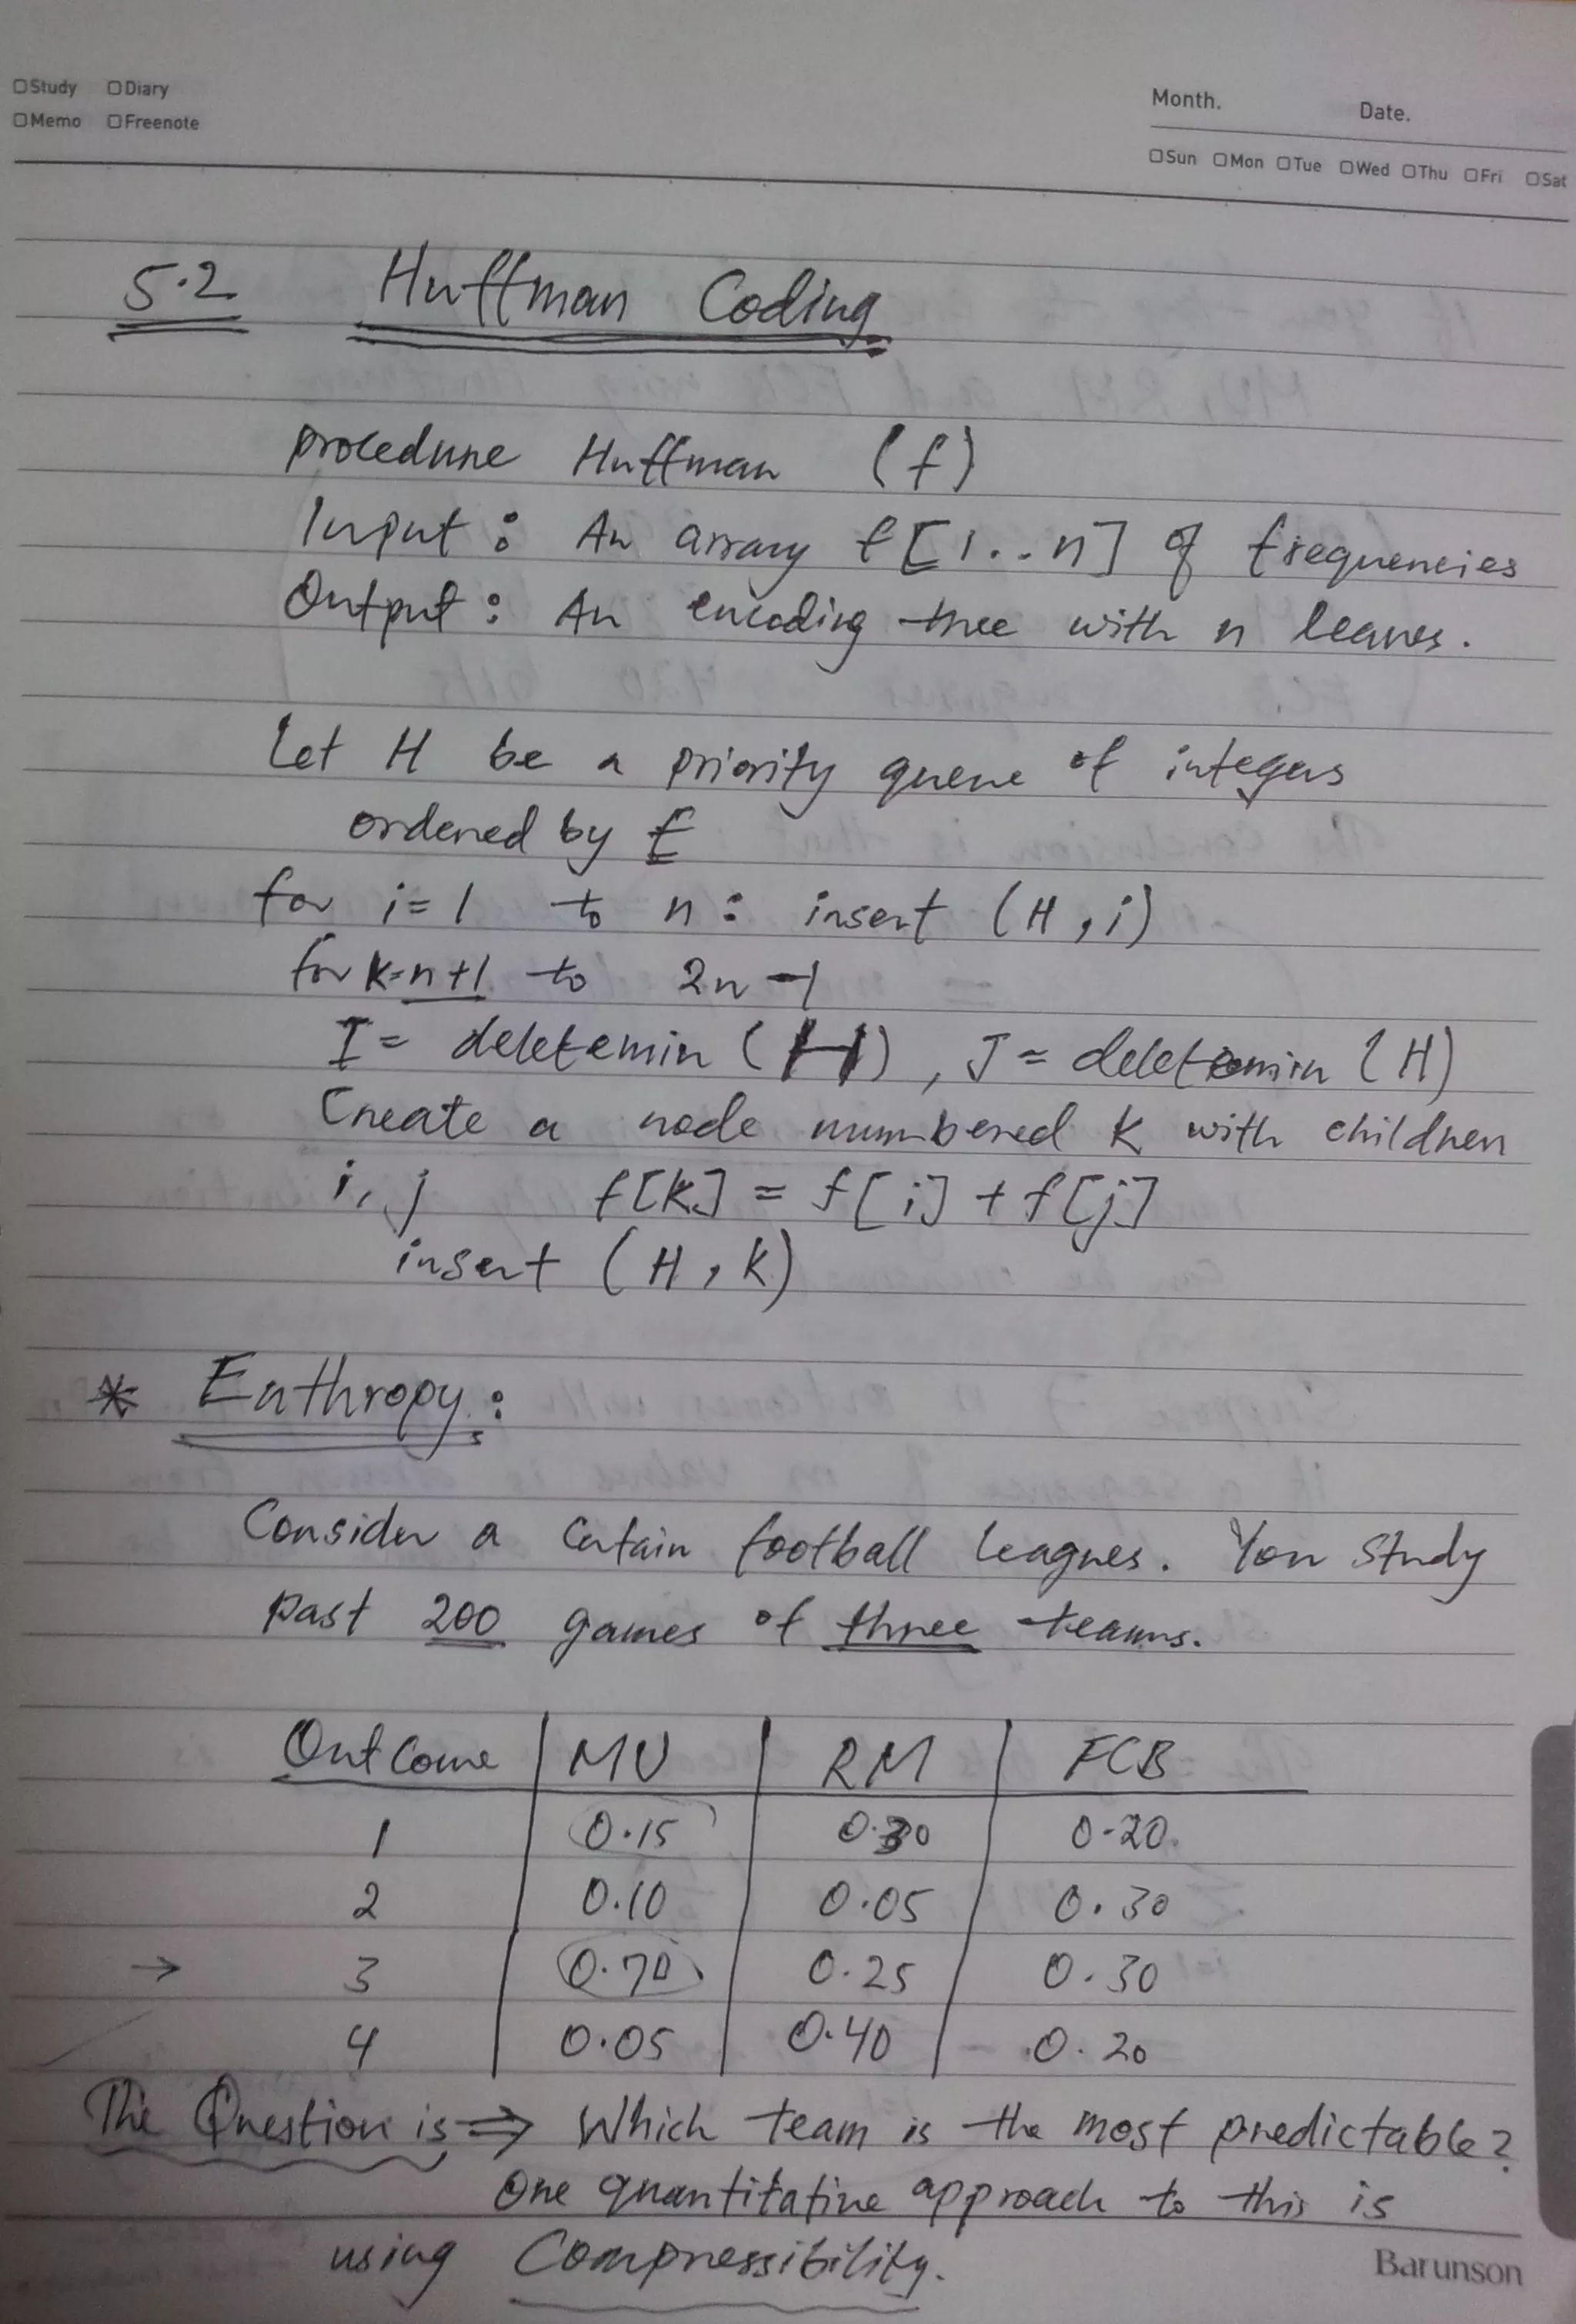 □Study □Diary
□Memo □Freenote
Month. Date.
□Sun □Mon □Tue □Wed □Thu □Fri □Sat
5.2 Huffman Coding
procedure Huffman (f)
Input : An array f[1..n] of frequencies
Output : An encoding tree with n leaves.
Let H be a priority queue of integers
ordered by f
for i=1 to n : insert (H, i)
for k=n+1 to 2n-1
I= deletemin (H), J= deletemin (H)
Create a node numbered k with children
i, j f[k] = f[i] + f[j]
insert (H, k)
* Enthropy :
Consider a certain football leagues. You study
past 200 games of three teams.
Outcome | MU | RM | FCB
1 0.15 0.30 0.20
2 0.10 0.05 0.30
→ 3 0.70 0.25 0.30
4 0.05 0.40 0.20
The Question is ⇒ Which team is the most predictable?
One quantitative approach to this is
using Compressibility.
Barunson